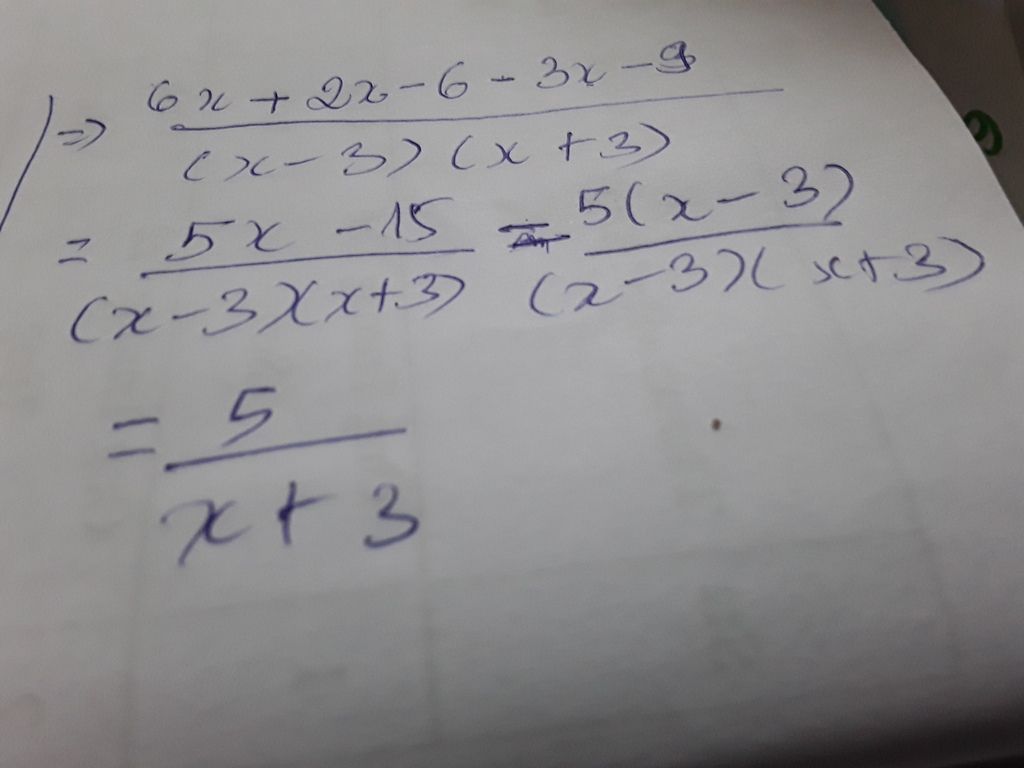 => 6x + 2x - 6 - 3x - 9 / (x - 3) (x + 3)
= 5x - 15 / (x - 3)(x + 3) = 5(x - 3) / (x - 3)(x + 3)
= 5 / x + 3